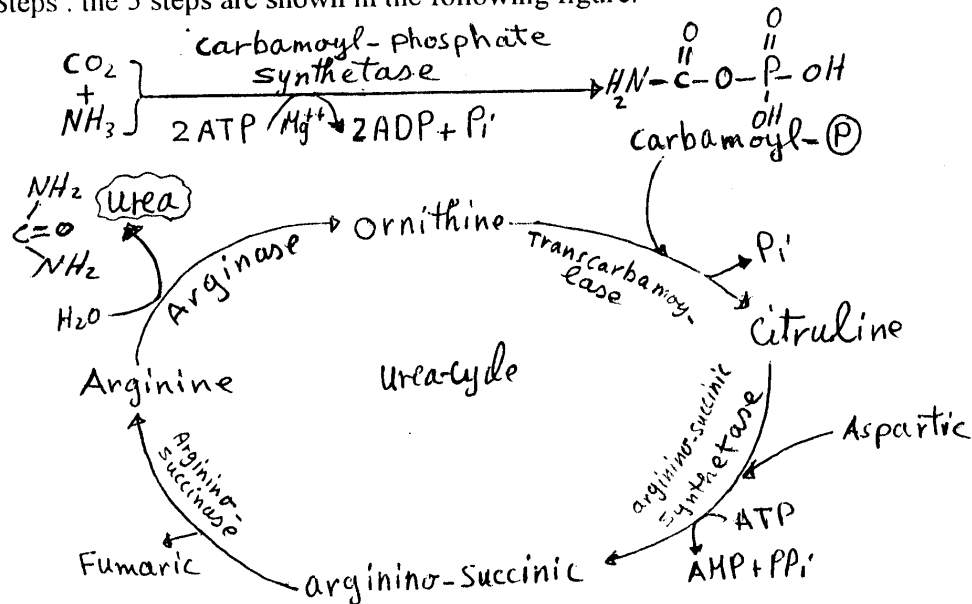 steps . the 5 steps are shown in the following figure.
carbamoyl-phosphate
synthetase
CO2
+
NH3
2ATP Mg++ 2ADP + Pi
O O
H2N-C-O-P-OH
OH
carbamoyl-P
NH2
C=O
NH2
urea
H2O
Arginase
Ornithine
Transcarbamoy-
lase
Pi
Citruline
Arginine
urea-cycle
arginino-succinic
synthetase
Aspartic
ATP
AMP + PPi
Arginino-
succinase
Fumaric
arginino-succinic